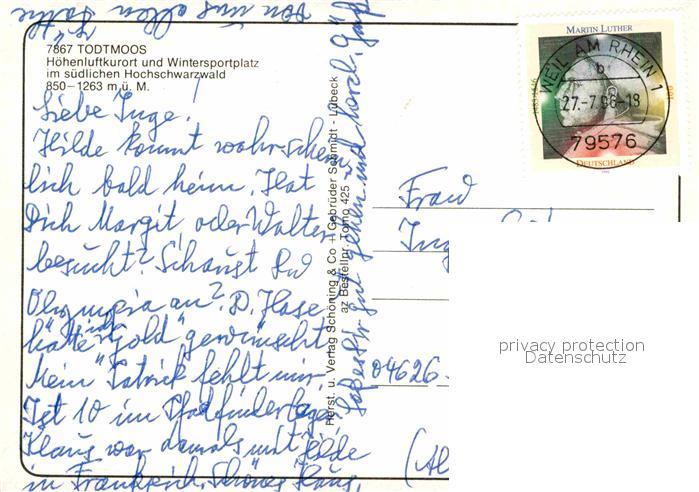 7867 TODTMOOS
Höhenluftkurort und Wintersportplatz
im südlichen Hochschwarzwald
850–1263 m ü. M.
Liebe Inge!
Hilde kommt wahrschein
lich bald heim. Hat
Dich Margit oder Walter
besucht? Schaust Du
Olympia an? D. Hase
hätte ich "Gold" gewünscht
Mein Patrick fehlt mir,
Ist 10 im Pfadfinderlager,
Klaus war damals mit Hilde
in Frankreich. Schönes Haus,
Laßes Dir gut gehen und herzl. Grüße
von uns allen
Herst. u. Verlag Schöning & Co + Gebrüder Schmidt - Lübeck
az Bestellnr. Tomo 425
MARTIN LUTHER
1483-1546
100
DEUTSCHLAND
WEIL AM RHEIN 1
b
27.-7.96-18
79576
Frau
04626
privacy protection
Datenschutz